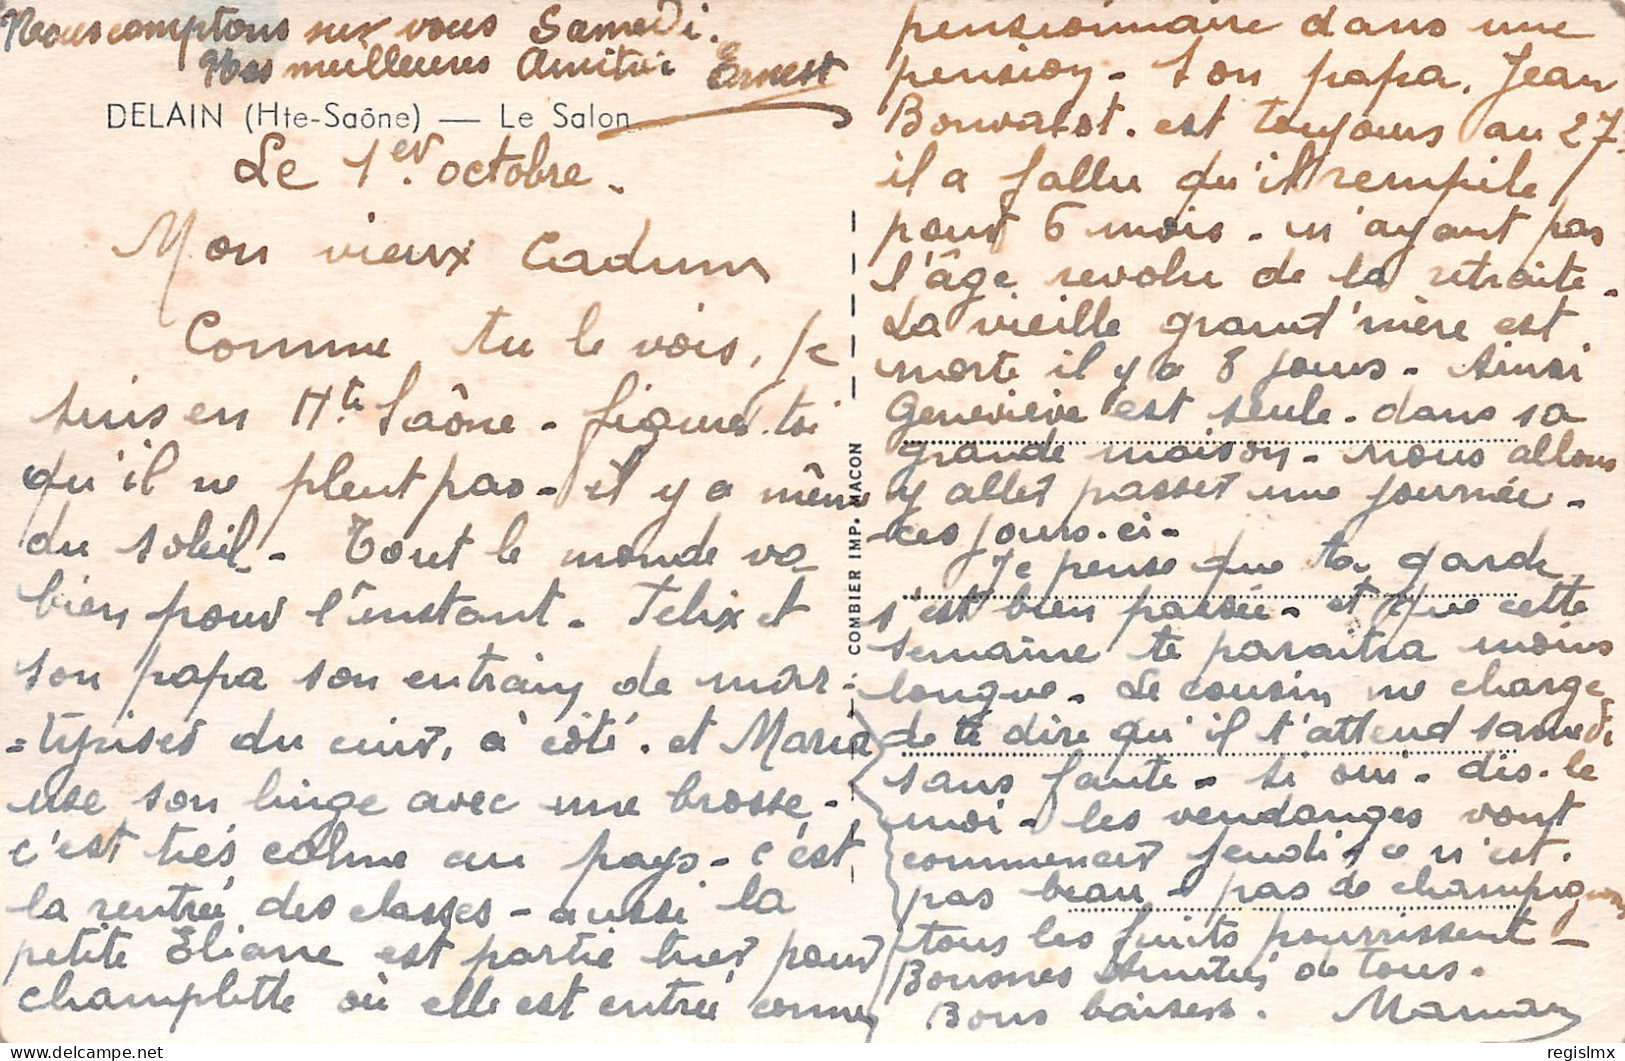 Nous comptons sur vous Samedi.
Nos meilleures Amitiés Ernest
DELAIN (Hte-Saône) — Le Salon
Le 1er octobre.
Mon vieux Cadum
Comme tu le vois, je
suis en Hte Saône - figures-toi
qu'il ne pleut pas - il y a même
du soleil - Tout le monde va
bien pour l'instant. Felix et
son papa son entrain de mar-
=tyriser du cuir, à côté. et Maria
use son linge avec une brosse -
c'est très calme au pays - c'est
la rentrée des classes - aussi la
petite Eliane est partie hier pour
champlitte où elle est entrée comme
pensionnaire dans une
pension - Son papa. Jean
Bonvalot. est toujours au 27.
il a fallu qu'il rempile
pour 6 mois - n'ayant pas
l'âge revolu de la retraite -
La vieille grand'mère est
morte il y a 8 jours - Ainsi
Geneviève est seule - dans sa
grande maison - nous allons
y aller passer une journée -
ces jours-ci -
Je pense que ta garde
s'est bien passée - et que cette
semaine te paraitra moins
longue - Le cousin me charge
de te dire qu'il t'attend samedi
sans faute - si oui - dis-le
moi - les vendanges vont
commencer jeudi - ce n'est
pas beau - pas de champignons
tous les fruits pourrissent -
Bonnes Amitiés de tous.
Bons baisers. Maman
COMBIER IMP. MACON
regislmx
delcampe.net